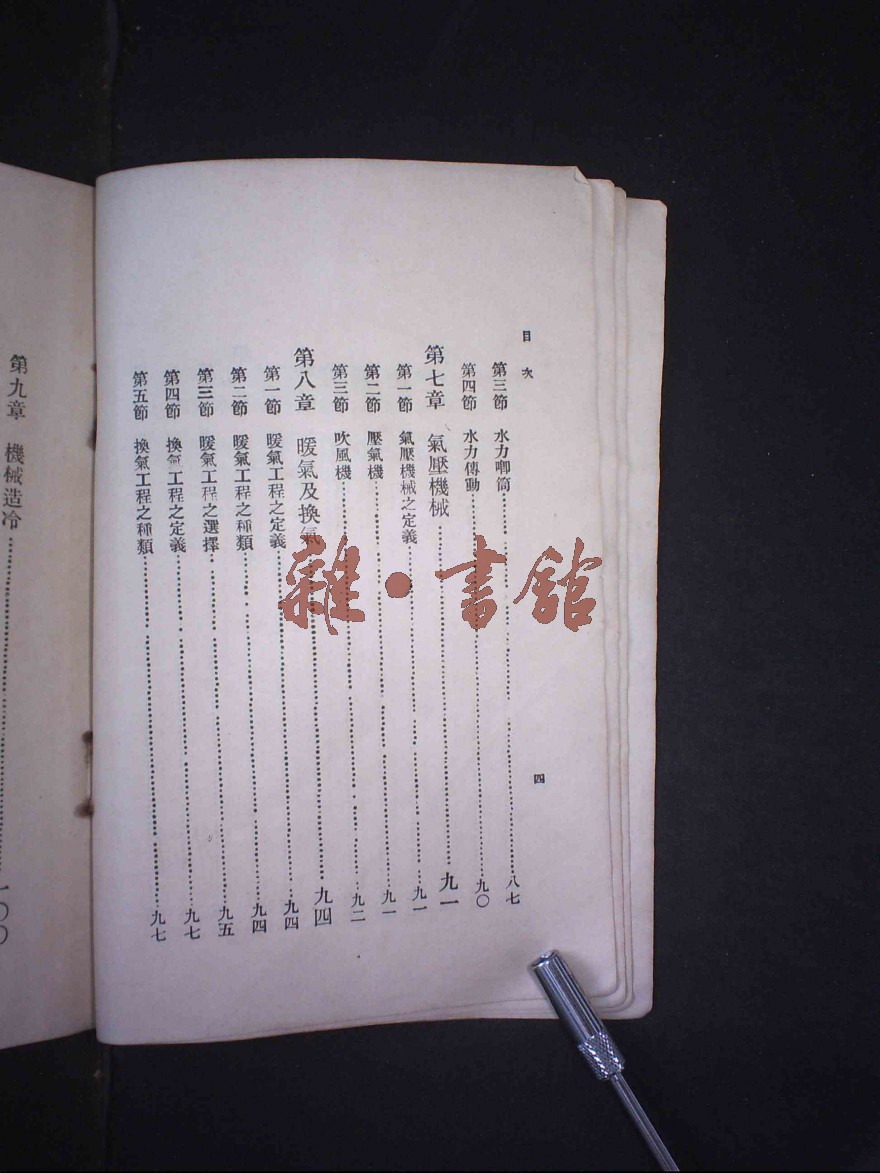 目次
四
第三節 水力唧筒……八七
第四節 水力傳動……九〇
第七章 氣壓機械……九一
第一節 氣壓機械之定義……九一
第二節 壓氣機……九一
第三節 吹風機……九二
第八章 暖氣及換氣……九四
第一節 暖氣工程之定義……九四
第二節 暖氣工程之種類……九四
第三節 暖氣工程之選擇……九五
第四節 換氣工程之定義……九七
第五節 換氣工程之種類……九七
第九章 機械造冷……一〇〇
雜·書館